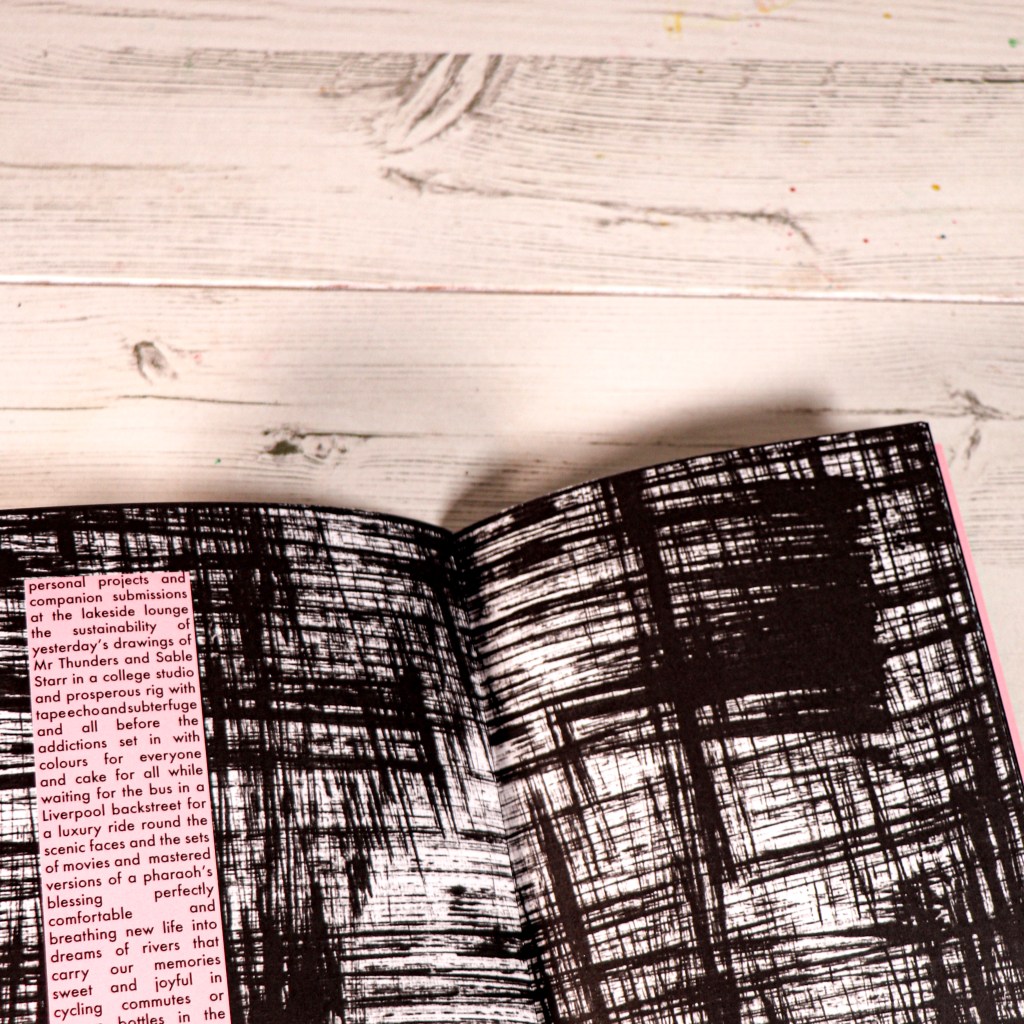 personal projects and
companion submissions
at the lakeside lounge
the sustainability of
yesterday's drawings of
Mr Thunders and Sable
Starr in a college studio
and prosperous rig with
tapeechoandsubterfuge
and all before the
addictions set in with
colours for everyone
and cake for all while
waiting for the bus in a
Liverpool backstreet for
a luxury ride round the
scenic faces and the sets
of movies and mastered
versions of a pharaoh's
blessing perfectly
comfortable and
breathing new life into
dreams of rivers that
carry our memories
sweet and joyful in
cycling commutes or
bottles in the